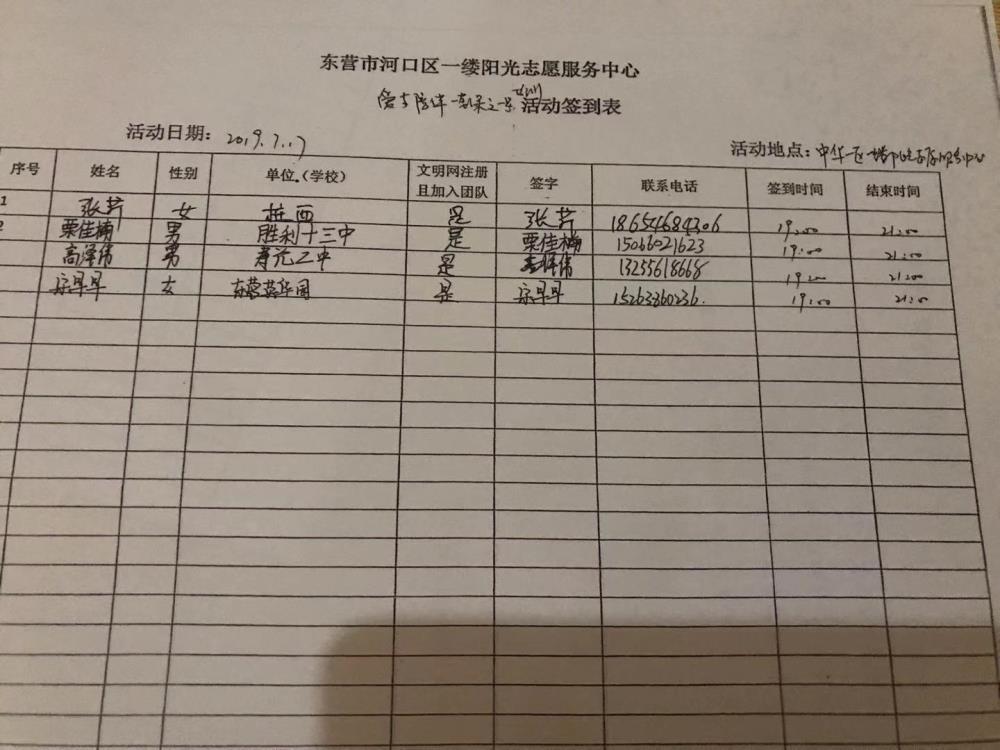 东营市河口区一缕阳光志愿服务中心
活动签到表
活动日期: 2019.7.17
活动地点: 中华
序号 姓名 性别 单位(学校) 文明网注册且加入团队 签字 联系电话 签到时间 结束时间
1 张芹 女 桩西 是 张芹 18654684306 19:00 21:00
2 栗佳楠 男 胜利十三中 是 栗佳楠 15066021623 19:00 21:00
高泽伟 男 是 高泽伟 13255618668 19:00 21:00
宗早早 女 东营英华园 是 宗早早 15263860236. 19:00 21:00